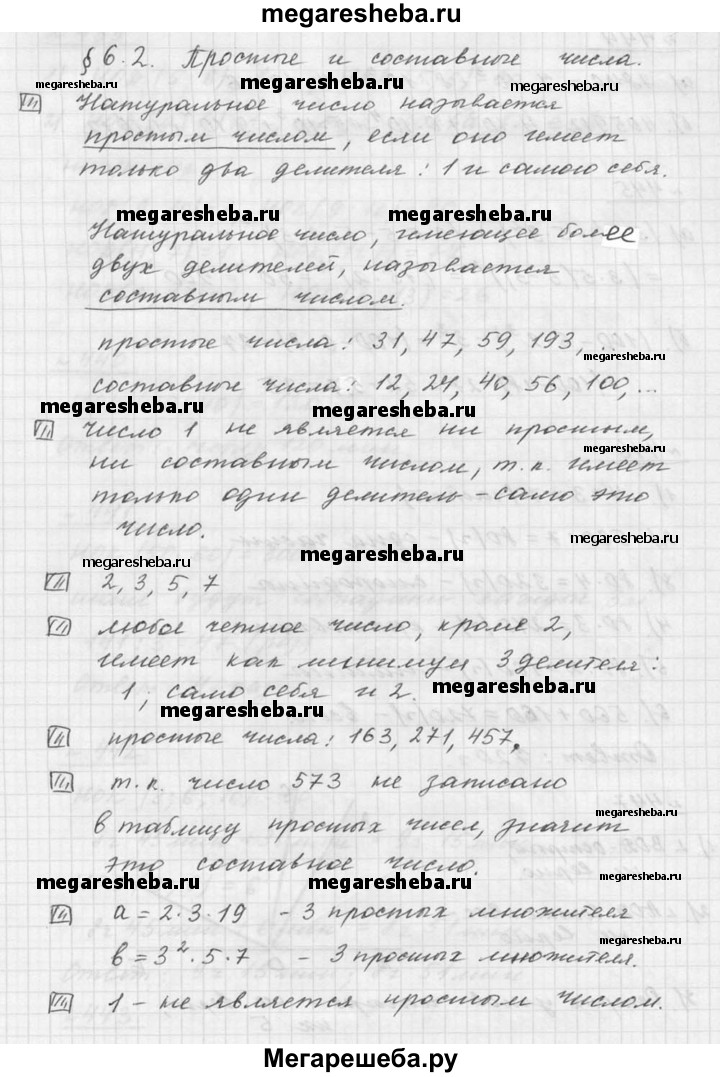 megaresheba.ru
§ 6.2. Простые и составные числа.
megaresheba.ru megaresheba.ru megaresheba.ru
Натуральное число называется
простым числом, если оно имеет
только два делителя: 1 и самого себя.
megaresheba.ru megaresheba.ru
Натуральное число, имеющее более
двух делителей, называется
составным числом.
простые числа: 31, 47, 59, 193, ...
megaresheba.ru
составные числа: 12, 24, 40, 56, 100, ...
megaresheba.ru megaresheba.ru
число 1 не является ни простым,
megaresheba.ru
ни составным числом, т.к. имеет
только один делитель - само это
число.
megaresheba.ru
megaresheba.ru megaresheba.ru
2, 3, 5, 7
любое четное число, кроме 2,
имеет как минимум 3 делителя:
1; само себя и 2.
megaresheba.ru
megaresheba.ru
простые числа: 163, 271, 457,
т.к. число 573 не записано
megaresheba.ru
в таблицу простых чисел, значит
это составное число.
megaresheba.ru megaresheba.ru megaresheba.ru
a = 2·3·19 - 3 простых множителя
megaresheba.ru
b = 3²·5·7 - 3 простых множителя.
1 - не является простым числом.
Мегарешеба.ру